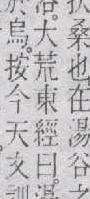 扶桑也在湯谷之
浴。大荒東經曰湯
於烏。按今天文訓